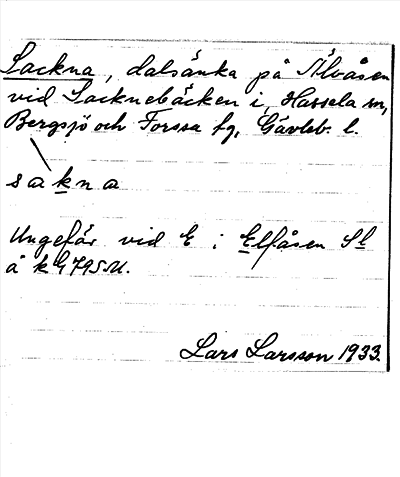 Sackna, dalsänka på Älvåsen
vid Sacknebäcken i Hassela sn,
Bergsjö och Forssa tg, Gävleb. l.
sakna
Ungefär vid E i Elfåsen Sl
å k G 795 M.
Lars Larsson 1933.